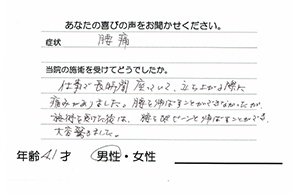 あなたの喜びの声をお聞かせください。
症状 腰痛
当院の施術を受けてどうでしたか。
仕事で長時間座っていて、立ち上がる際に
痛みがありました。腰を伸ばすことができなかったが、
施術を受けた後は、腰をピーンと伸ばすことができ、
大変驚きました。
年齢 41 才 男性・女性